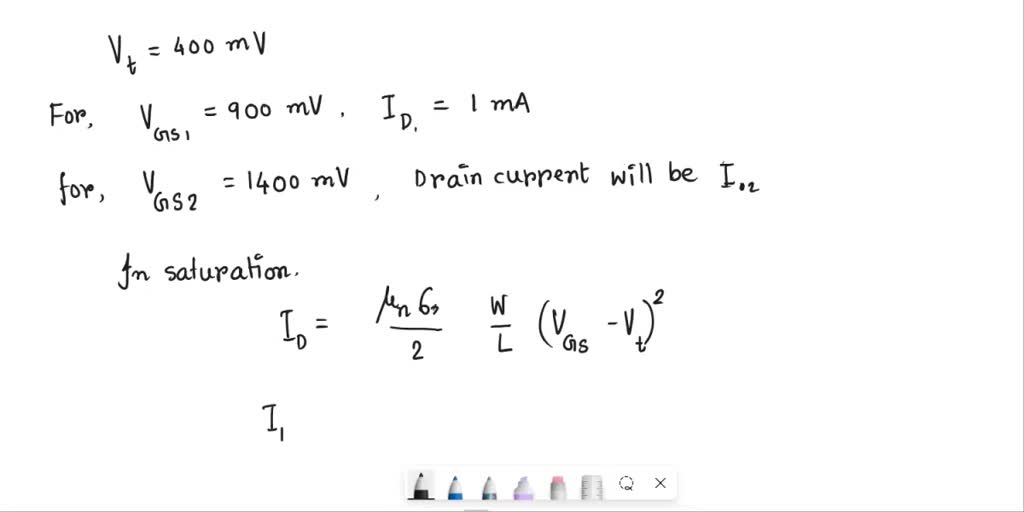 V_t = 400 mV
For, V_GS1 = 900 mV, I_D1 = 1 mA
for, V_GS2 = 1400 mV, Drain current will be I_D2
In saturation.
I_D = μ_n C_ox / 2 W / L (V_GS - V_t)^2
I_1